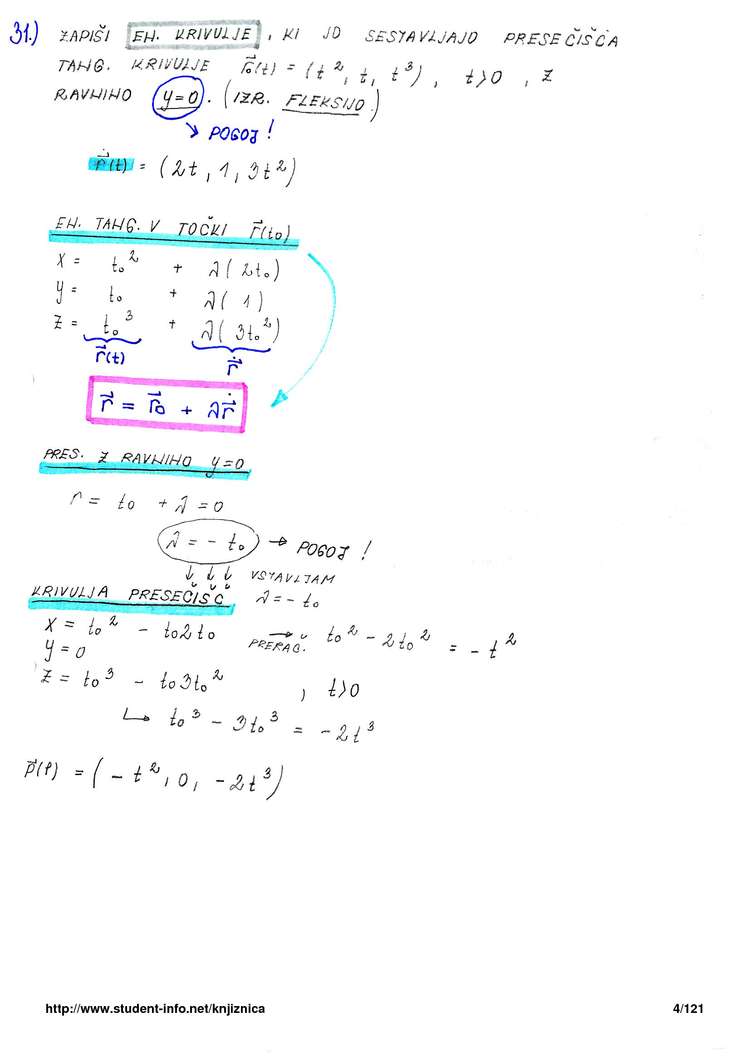 31.) ZAPIŠI EN. KRIVULJE , KI JO SESTAVLJAJO PRESEČIŠČA
TANG. KRIVULJE r⃗₀(t) = (t², t, t³) , t>0 , Z
RAVNINO y=0. (IZR. FLEKSIJO.)
↘ POGOJ !
ṙ⃗(t) = (2t, 1, 3t²)
EN. TANG. V TOČKI r⃗(t₀)
x = t₀² + λ(2t₀)
y = t₀ + λ(1)
z = t₀³ + λ(3t₀²)
r⃗(t) ṙ⃗
r⃗ = r⃗₀ + λṙ⃗
PRES. Z RAVNINO y=0
r = t₀ + λ = 0
λ = - t₀ → POGOJ !
↓ ↓ ↓ VSTAVLJAM
KRIVULJA PRESEČIŠČ λ = - t₀
x = t₀² - t₀2t₀ → PRERAČ. t₀² - 2t₀² = - t²
y = 0
z = t₀³ - t₀3t₀² , t>0
↳ t₀³ - 3t₀³ = - 2t³
p⃗(t) = (- t², 0, - 2t³)
http://www.student-info.net/knjiznica 4/121